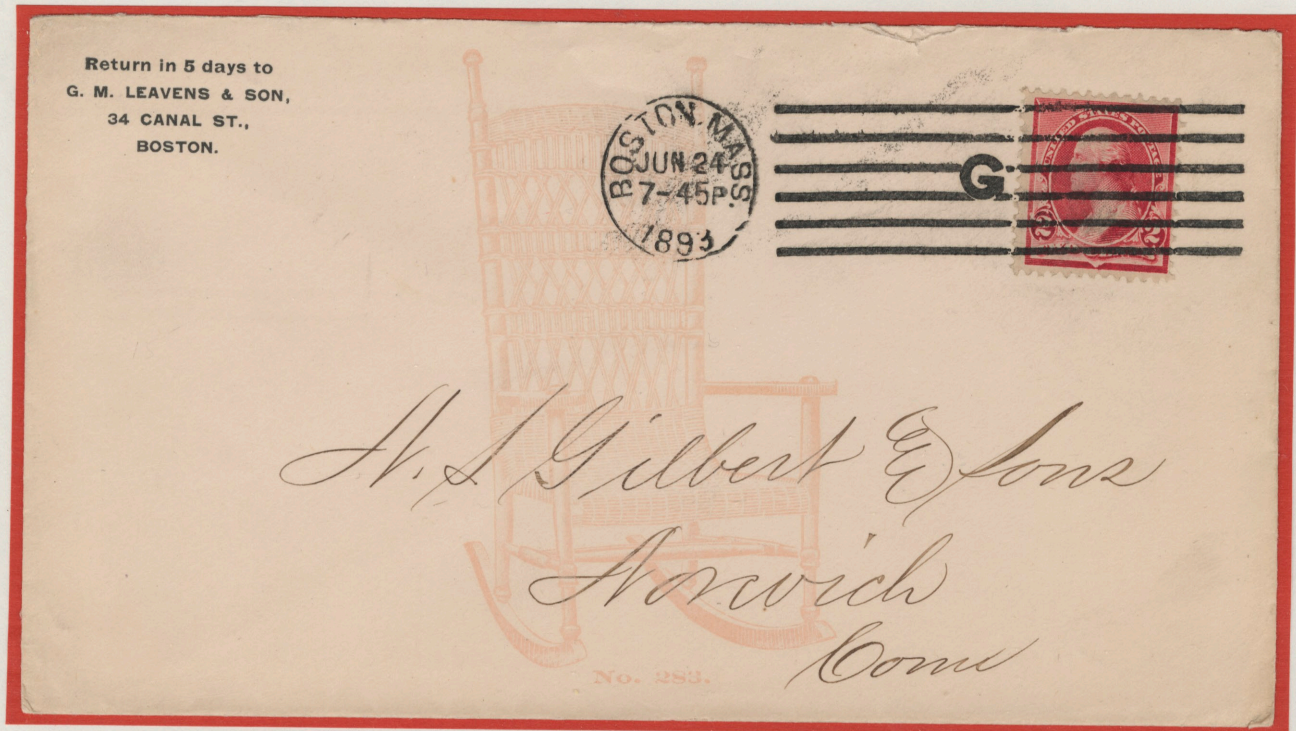 Return in 5 days to
G. M. LEAVENS & SON,
34 CANAL ST.,
BOSTON.
BOSTON, MASS.
JUN 24
7-45P
1893
G
UNITED STATES POSTAGE
2 2
N. S Gilbert & Sons
Norwich
Conn
No. 283.